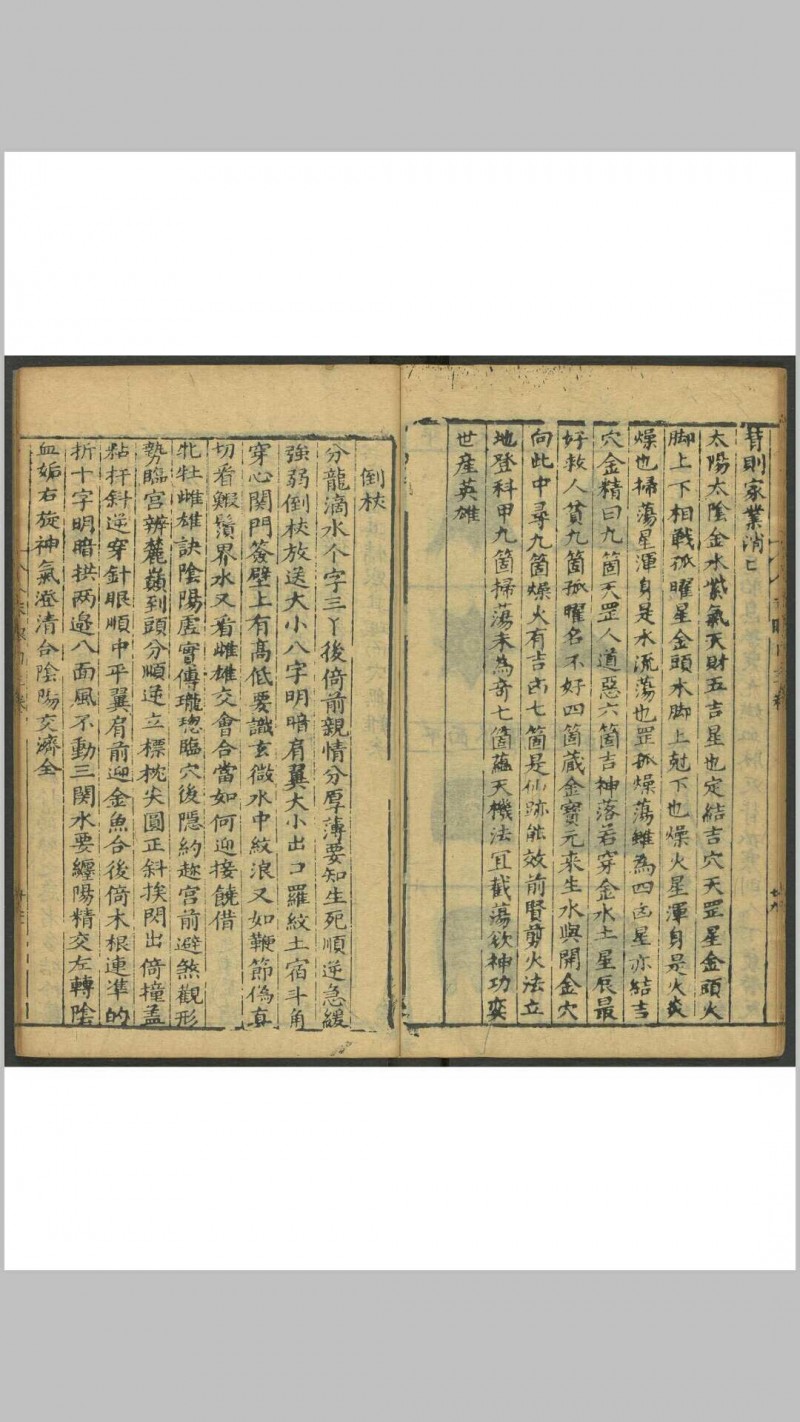 昔則家業消亡
太陽太陰金水紫氣天財五吉星也定結吉穴天罡星金頭火
脚上下相戰孤曜星金頭木脚上尅下也燥火星渾身是火炎
燥也掃蕩星渾身是水流蕩也罡孤燥蕩雖為四凶星亦結吉
穴金精曰九箇天罡人道惡六箇吉神落若穿金水土星辰最
好救人貧九箇孤曜名不好四箇蔵金寶元來生水與開金穴
向此中尋九箇燥火有吉凶七箇是仙跡能效前賢剪火法立
地登科甲九箇掃蕩未為奇七箇蘊天機法宜截蕩欲神功奕
世産英雄
倒杖
分龍滴水个字三丫後倚前親情分厚薄要知生死順逆急緩
強弱倒杖放送大小八字明暗肩翼大小出口羅紋土宿斗角
穿心関門簽壁上有髙低要識玄微水中紋浪又如鞭節偽真
切看蝦鬚界水又看雌雄交會合當如何迎接饒借
牝牡雌雄訣陰陽虛實傳瓏璁臨穴後隱約趂宮前避煞觀形
勢臨宮辨麓巔到頭分順逆立標枕尖圓正斜挨閃出倚撞盖
粘扞斜逆穿針眼順中平翼肩前迎金魚合後倚木根連凖的
折十字明暗拱两邉八面風不動三関水要纏陽精交左轉陰
血姤右旋神氣澄清合陰陽交濟全